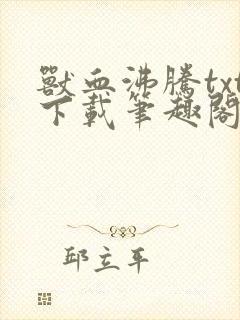 獸血沸騰txt
下載筆趣閣
邱立平